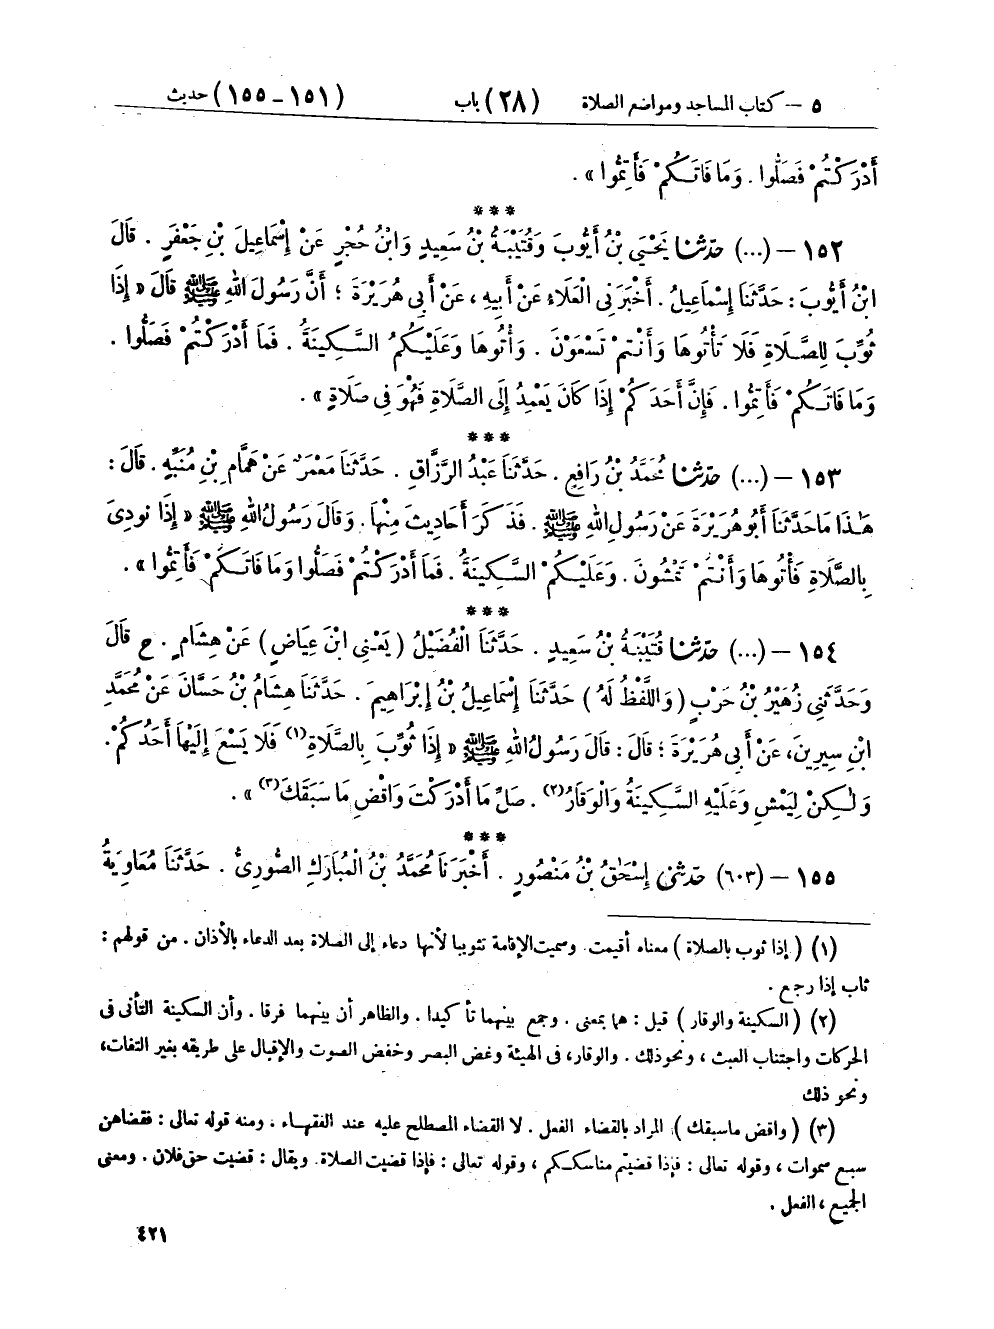 ٥ – كتاب المساجد ومواضع الصلاة (٢٨) باب (١٥١ – ١٥٥) حديث
أَدْرَكْتُمْ فَصَلُّوا . وَمَا فَاتَكُمْ فَأَتِمُّوا » .
***
١٥٢ – (...) حَدَّثَنَا يَحْيَى بْنُ أَيُّوبَ وَقُتَيْبَةُ بْنُ سَعِيدٍ وَابْنُ حُجْرٍ عَنْ إِسْمَاعِيلَ بْنِ جَعْفَرٍ . قَالَ
ابْنُ أَيُّوبَ : حَدَّثَنَا إِسْمَاعِيلُ . أَخْبَرَنِي الْعَلَاءُ عَنْ أَبِيهِ ، عَنْ أَبِي هُرَيْرَةَ ؛ أَنَّ رَسُولَ اللهِ ﷺ قَالَ « إِذَا
ثُوِّبَ لِلصَّلَاةِ فَلَا تَأْتُوهَا وَأَنْتُمْ تَسْعَوْنَ . وَأْتُوهَا وَعَلَيْكُمُ السَّكِينَةُ . فَمَا أَدْرَكْتُمْ فَصَلُّوا .
وَمَا فَاتَكُمْ فَأَتِمُّوا . فَإِنَّ أَحَدَكُمْ إِذَا كَانَ يَعْمِدُ إِلَى الصَّلَاةِ فَهُوَ فِي صَلَاةٍ » .
***
١٥٣ – (...) حَدَّثَنَا مُحَمَّدُ بْنُ رَافِعٍ . حَدَّثَنَا عَبْدُ الرَّزَّاقِ . حَدَّثَنَا مَعْمَرٌ عَنْ هَمَّامِ بْنِ مُنَبِّهٍ . قَالَ :
هَذَا مَا حَدَّثَنَا أَبُو هُرَيْرَةَ عَنْ رَسُولِ اللهِ ﷺ . فَذَكَرَ أَحَادِيثَ مِنْهَا . وَقَالَ رَسُولُ اللهِ ﷺ « إِذَا نُودِيَ
بِالصَّلَاةِ فَأْتُوهَا وَأَنْتُمْ تَمْشُونَ . وَعَلَيْكُمُ السَّكِينَةُ . فَمَا أَدْرَكْتُمْ فَصَلُّوا وَمَا فَاتَكُمْ فَأَتِمُّوا » .
***
١٥٤ – (...) حَدَّثَنَا قُتَيْبَةُ بْنُ سَعِيدٍ . حَدَّثَنَا الْفُضَيْلُ ( يَعْنِي ابْنَ عِيَاضٍ ) عَنْ هِشَامٍ . ح قَالَ
وَحَدَّثَنِي زُهَيْرُ بْنُ حَرْبٍ ( وَاللَّفْظُ لَهُ ) حَدَّثَنَا إِسْمَاعِيلُ بْنُ إِبْرَاهِيمَ . حَدَّثَنَا هِشَامُ بْنُ حَسَّانَ عَنْ مُحَمَّدِ
ابْنِ سِيرِينَ ، عَنْ أَبِي هُرَيْرَةَ ؛ قَالَ : قَالَ رَسُولُ اللهِ ﷺ « إِذَا ثُوِّبَ بِالصَّلَاةِ(١) فَلَا يَسْعَ إِلَيْهَا أَحَدُكُمْ .
وَلَكِنْ لِيَمْشِ وَعَلَيْهِ السَّكِينَةُ وَالْوَقَارُ(٢) . صَلِّ مَا أَدْرَكْتَ وَاقْضِ مَا سَبَقَكَ(٣) » .
***
١٥٥ – (٦٠٣) حَدَّثَنِي إِسْحَقُ بْنُ مَنْصُورٍ . أَخْبَرَنَا مُحَمَّدُ بْنُ الْمُبَارَكِ الصُّورِيُّ . حَدَّثَنَا مُعَاوِيَةُ
(١) ( إذا ثوب بالصلاة ) معناه أقيمت . وسميت الإقامة تثويبا لأنها دعاء إلى الصلاة بعد الدعاء بالأذان . من قولهم :
ثاب إذا رجع .
(٢) ( السكينة والوقار ) قيل : هما بمعنى . وجمع بينهما تأكيدا . والظاهر أن بينهما فرقا . وأن السكينة التأنى فى
الحركات واجتناب العبث ، ونحو ذلك . والوقار ، فى الهيئة وغض البصر وخفض الصوت والإقبال على طريقه بغير التفات ،
ونحو ذلك
(٣) ( واقض ما سبقك ) المراد بالقضاء الفعل . لا القضاء المصطلح عليه عند الفقهاء . ومنه قوله تعالى : فقضاهن
سبع سموات ، وقوله تعالى : فإذا قضيتم مناسككم ، وقوله تعالى : فإذا قضيت الصلاة . ويقال : قضيت حق فلان . ومعنى
الجميع ، الفعل .
٤٢١